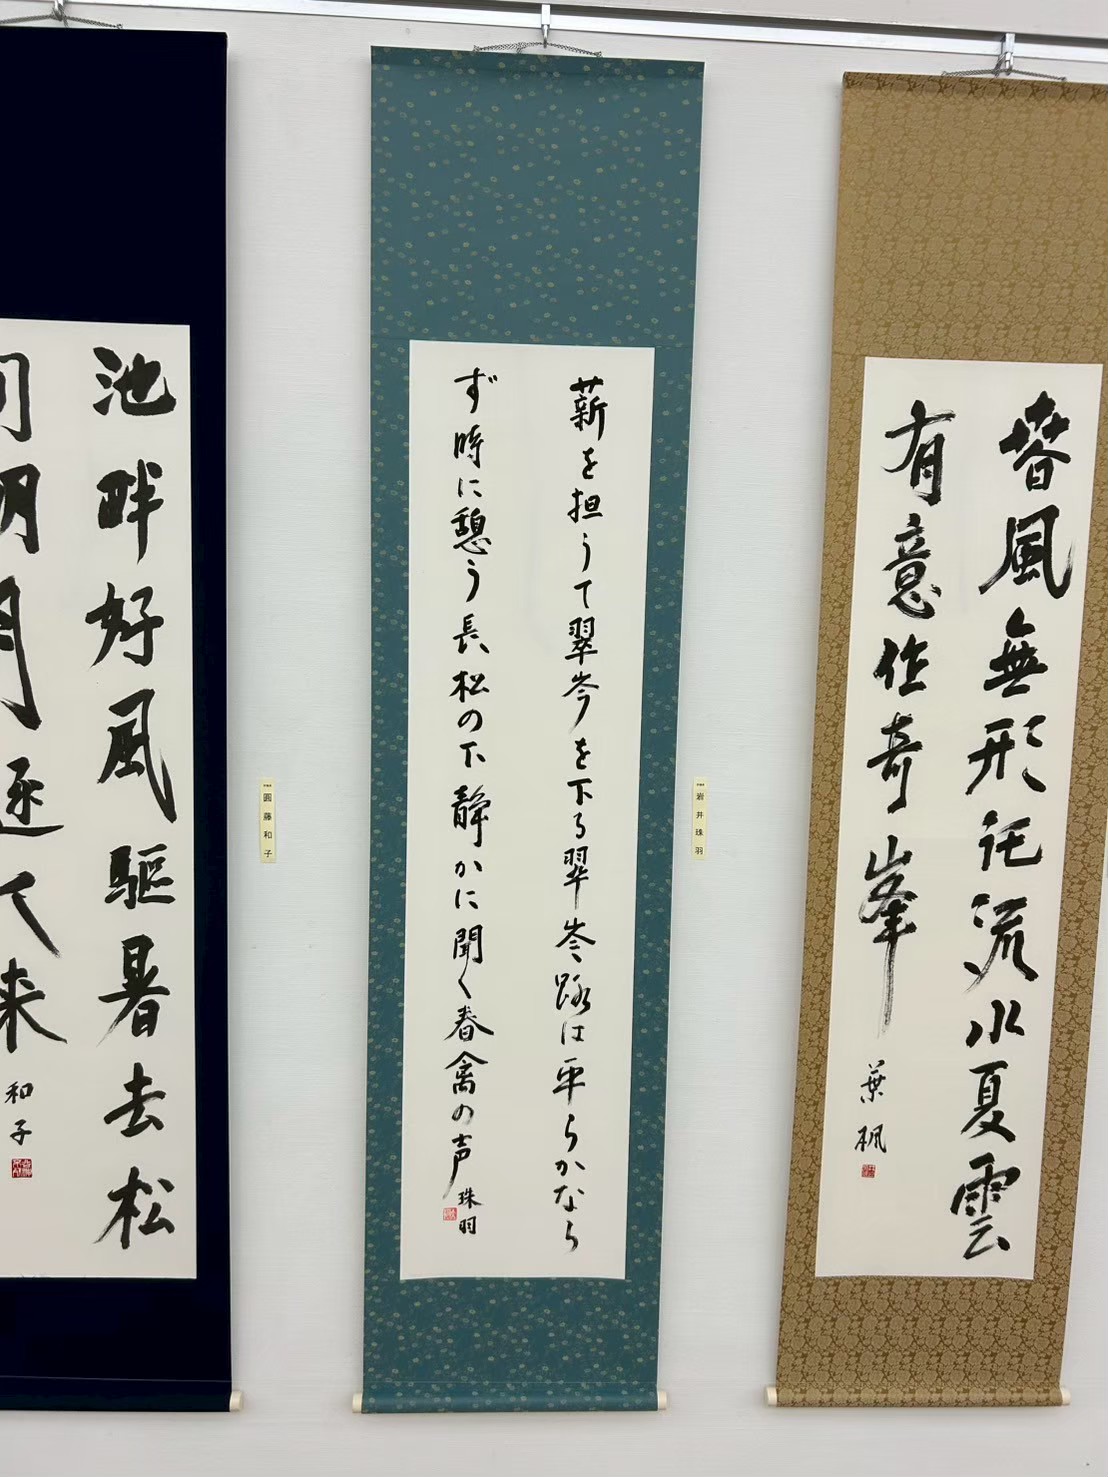 春風無形託流水夏雲
有意作奇峯
葉楓
岩井珠羽
薪を担うて翠岑を下る翠岑路は平らかなら
ず時に憩う長松の下静かに聞く春禽の声
珠羽
圓藤和子
池畔好風驅暑去松
間明月逐人来
和子